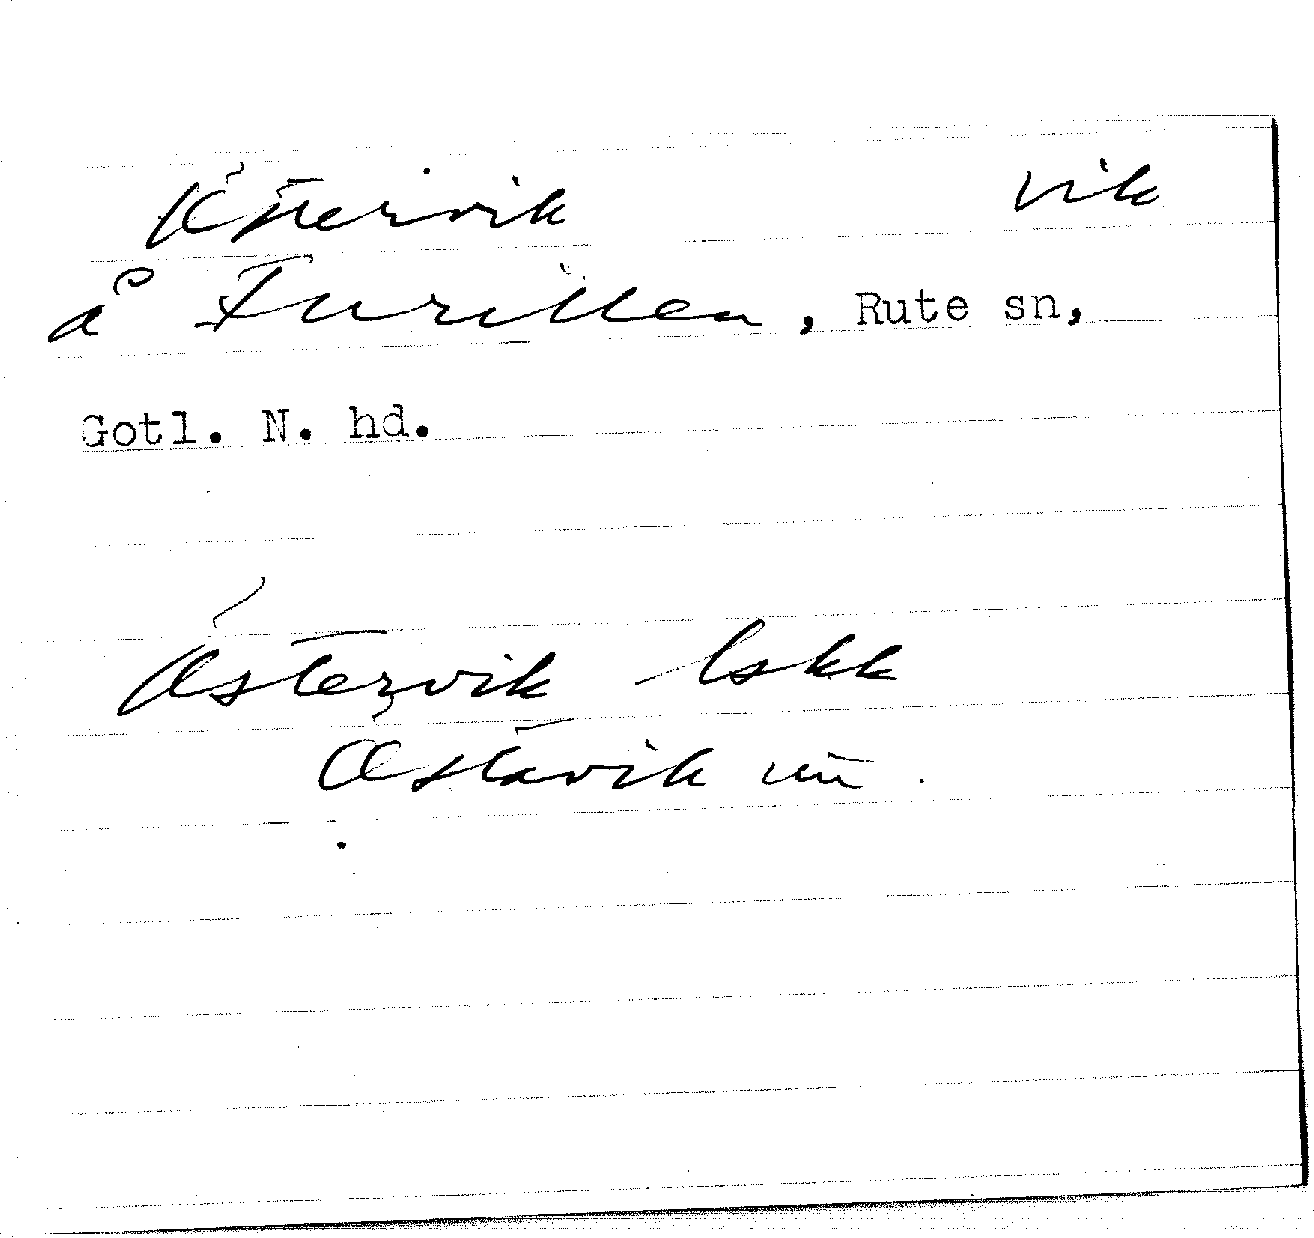 Östervik vik
å Furillen, Rute sn,
Gotl. N. hd.
Östervik lskk
Östavik